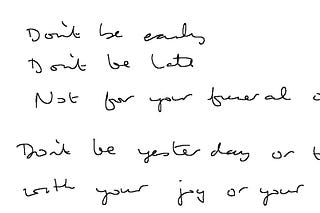 Don't be early
Don't be late
Not for your funeral
Don't be yesterday or
with your joy or your